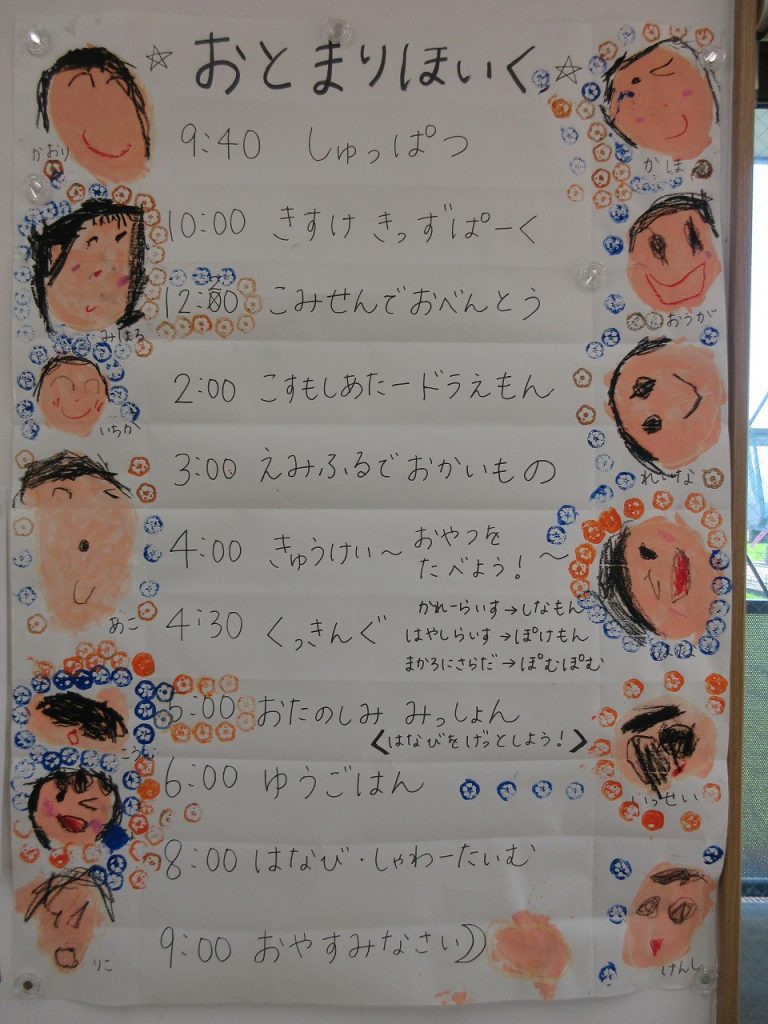 ☆ おとまりほいく ☆
9:40 しゅっぱつ
10:00 きすけ きっずぱーく
12:00 こみせんでおべんとう
2:00 こすもしあたードラえもん
3:00 えみふるでおかいもの
4:00 きゅうけい～ おやつを
たべよう! ～
4:30 くっきんぐ
かれーらいす→しなもん
はやしらいす→ぽけもん
まかろにさらだ→ぽむぽむ
5:00 おたのしみ みっしょん
<はなびをげっとしよう!>
6:00 ゆうごはん
8:00 はなび・しゃわーたいむ
9:00 おやすみなさい
かおり
みはる
いちか
あこ
りこ
かほ
おうが
れいな
いっせい
けんし